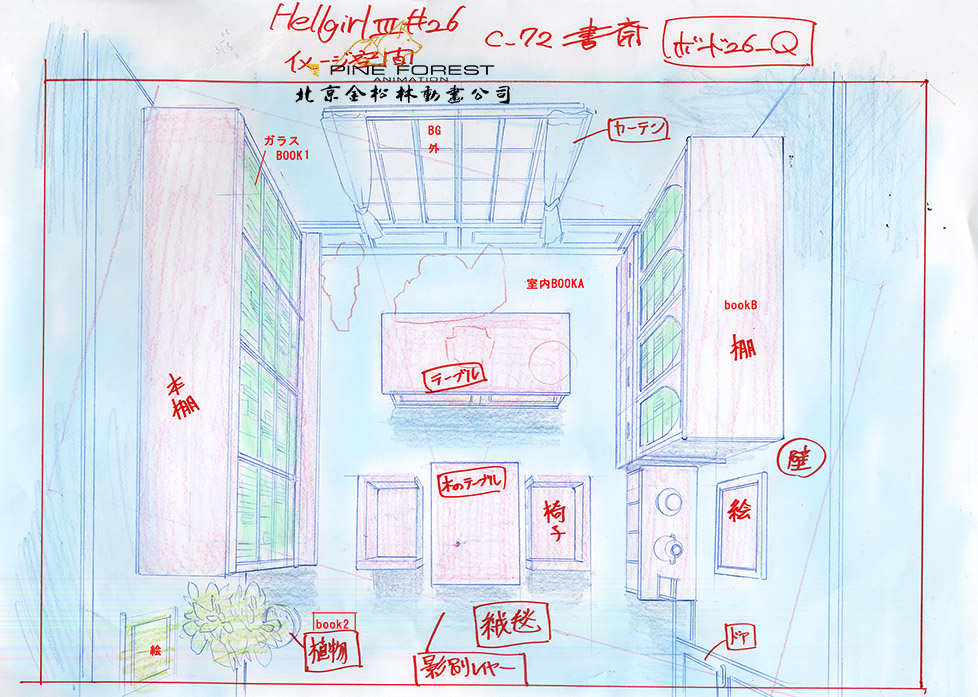 Hellgirl III #26
C-72 書斎
ボード26_Q
PINE FOREST
ANIMATION
北京金松林動畫公司
ガラス
BOOK1
BG
外
カーテン
室内BOOKA
bookB
棚
本棚
テーブル
壁
木のテーブル
椅子
絵
絨毯
book2
植物
絵
影別レヤー
ドア